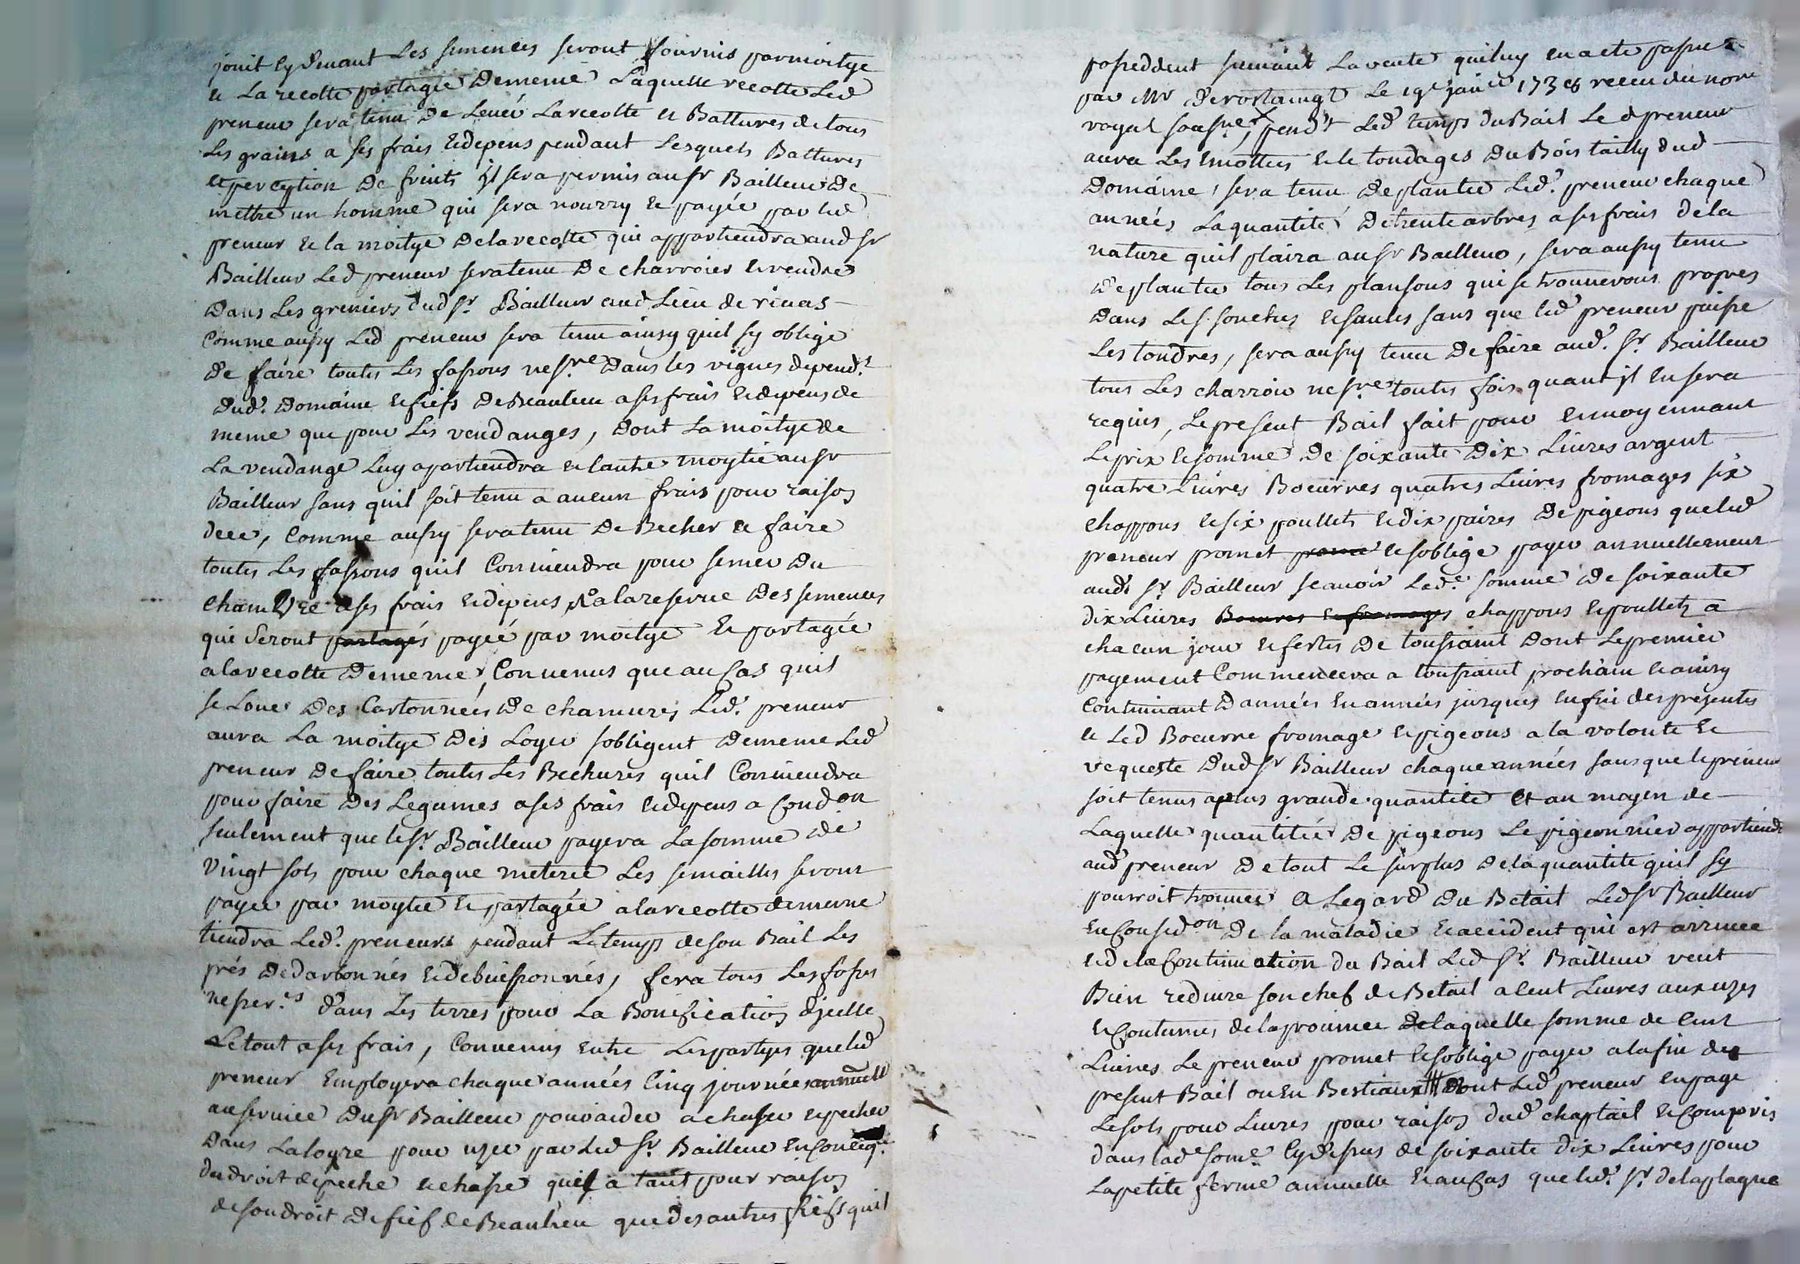 jouit Cy devant Les semences seront fournis par moitye
et La recolte partagée Dememe Laquelle recolte Led
preneur sera tenu De Levér La recolte et Battures de tous
Les grains a ses frais et depens pendant Lesquels Battures
et perception De fruits jl sera permis au sr Bailleur De
mettre un homme qui sera nourry et payée par led
preneur et la moitye de la recolte qui appartiendra aud sr
Bailleur Led preneur sera tenu De charroier et rendre
Dans Les greniers dud sr. Bailleur aud Lieu de rinas
Comme aussy Led preneur sera tenu ainsy quil sy oblige
de faire toutes Les fassons nessre Dans les vignes depend.t
dud. Domaine et fiefs de Beaulieu a ses frais et depens de
meme que pour Les vendanges, dont La moitye de
La vendange Luy apartiendra et lautre moytié au sr
Bailleur sans quil soit tenu a aucun frais pour raison
dece, Comme aussy sera tenu De Becher et faire
toutes Les fassons quil Conviendra pour semer du
chamvre a ses frais et depens a la reserve des semences
qui seront partagés payéé par moitye et partagée
a la recolte Dememe, Convenus que au Cas quil
se Loue des Cartonneés De chamvres Led. preneur
aura La moitye des Loyer sobligent Dememe Led
preneur De faire toutes Les Bechures quil Conviendra
pour faire Des Legumes a ses frais et depens a Condon
seulement que le sr. Bailleur payera La somme de
Vingt sols pour chaque meterée Les semailles seront
payée par moytié et partagée a la recolte dememe
tiendra Led. preneurs pendant Le temps de son Bail Les
prés dedarbonnés et debuissonnés, fera tous Les fossés
nesser.s dans Les terres pour La Bonification djcelle
Le tout a ses frais, Convenus Entre Les partyes que led
preneur Employera chaque années Cinq journées annuell
au service Du sr Bailleur pour aider a chasser et pecher
Dans La loyre pour user par Led sr. Bailleur En Conceq.
du droit de peche et chasse quil a tant pour raison
de son droit De fief de Beaulieu que des autres fiefs quil
possedent suivant La vente quil luy en a ete passeé
par Mr Derostaingt Le 19e janier 1738 receu du nore
royal soussne, pendt Led temps du Bail Le d preneur
aura Les Emottes et le tondages Du Bois tailly dud
Domaine, sera tenu De planter Led. preneur chaque
années La quantité De trente arbres a ses frais de la
nature quil plaira au sr Bailleur, sera aussy tenu
De planter tous Les plansons qui se trouverons propres
Dans Les souches et saules sans que led preneur puisse
Les tondres, sera aussy tenu De faire aud. sr. Bailleur
tous Les charroir nessre toutes fois quant jl En sera
requis, Le present Bail fait pour et moyennant
Le prix et somme De soixante Dix Livres argent
quatre Livres Boeurres quatres Livres fromages six
chappons et six poullets et dix paires De pigeons que led
preneur promet et soblige payer annuellement
aud. sr. Bailleur scavoir Lade somme De soixante
dix Livres Beurres et fromages chappons et poullets a
chacun jour et festes De toussaint Dont Le premier
payement Commencera a toussaint prochain et ainsy
Continuant Dannées En années jusques En fin des presentes
et Led Boeurre fromage et pigeons a la volonte et
requeste Dud sr Bailleur chaque années sans que le preneur
soit tenus a plus grande quantité Et au moyen de
Laquelle quantitée De pigeons Le pigeonnier appartiend.
aud preneur De tout Le surplus de la quantite quil sy
pourroit trouver A Legard Du Betail Led sr Bailleur
En Consed.on De la maladie et accident qui est arrivée
et de la Continuation du Bail Led sr. Bailleur veut
Bien reduire son chef de Betail a Cent Livres aux uzes
et Coutumes de la province De laquelle somme de Cent
Livres Le preneur promet et soblige payer a la fin du
present Bail ou En Bestiaux Dont Led preneur en paye
Le sols pour Livres pour raison dud chaptail et Compris
dans lade some. Cy dessus de soixante Dix Livres pour
La petite ferme annuelle et au Cas que led. sr. de la plagne